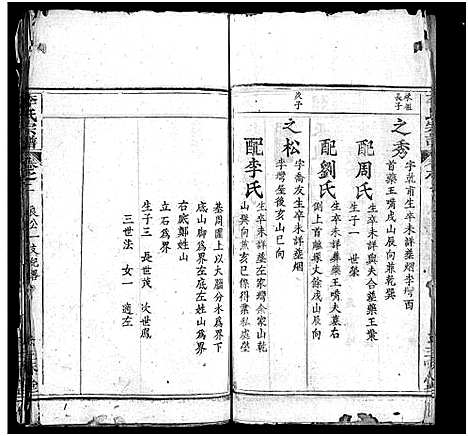 承祖長子
之秀
字乾甫生卒未詳塟烟李灣西
首藥王嘴戍山辰向兼乾巽
配周氏
生卒未詳與夫合塟藥王嘴
生子一 世榮
配劉氏
生卒未詳塟藥王嘴夫墓右
側上首離
丈餘戍山辰向
次子
之松
字喬友生卒未詳塟烟
李灣屋後亥山巳向
配李氏
生卒未詳塟左家灣余家山乾
山巽向兼亥巳係得業私處塋
基周圍上以大腦分水為界下
底山脚為界左底左姓山為界
右底鄭姓山
立石為界
生子三 長世茂 次世鳳
三世法 女一 適左
李氏宗譜
卷之二
良公一支紀畧